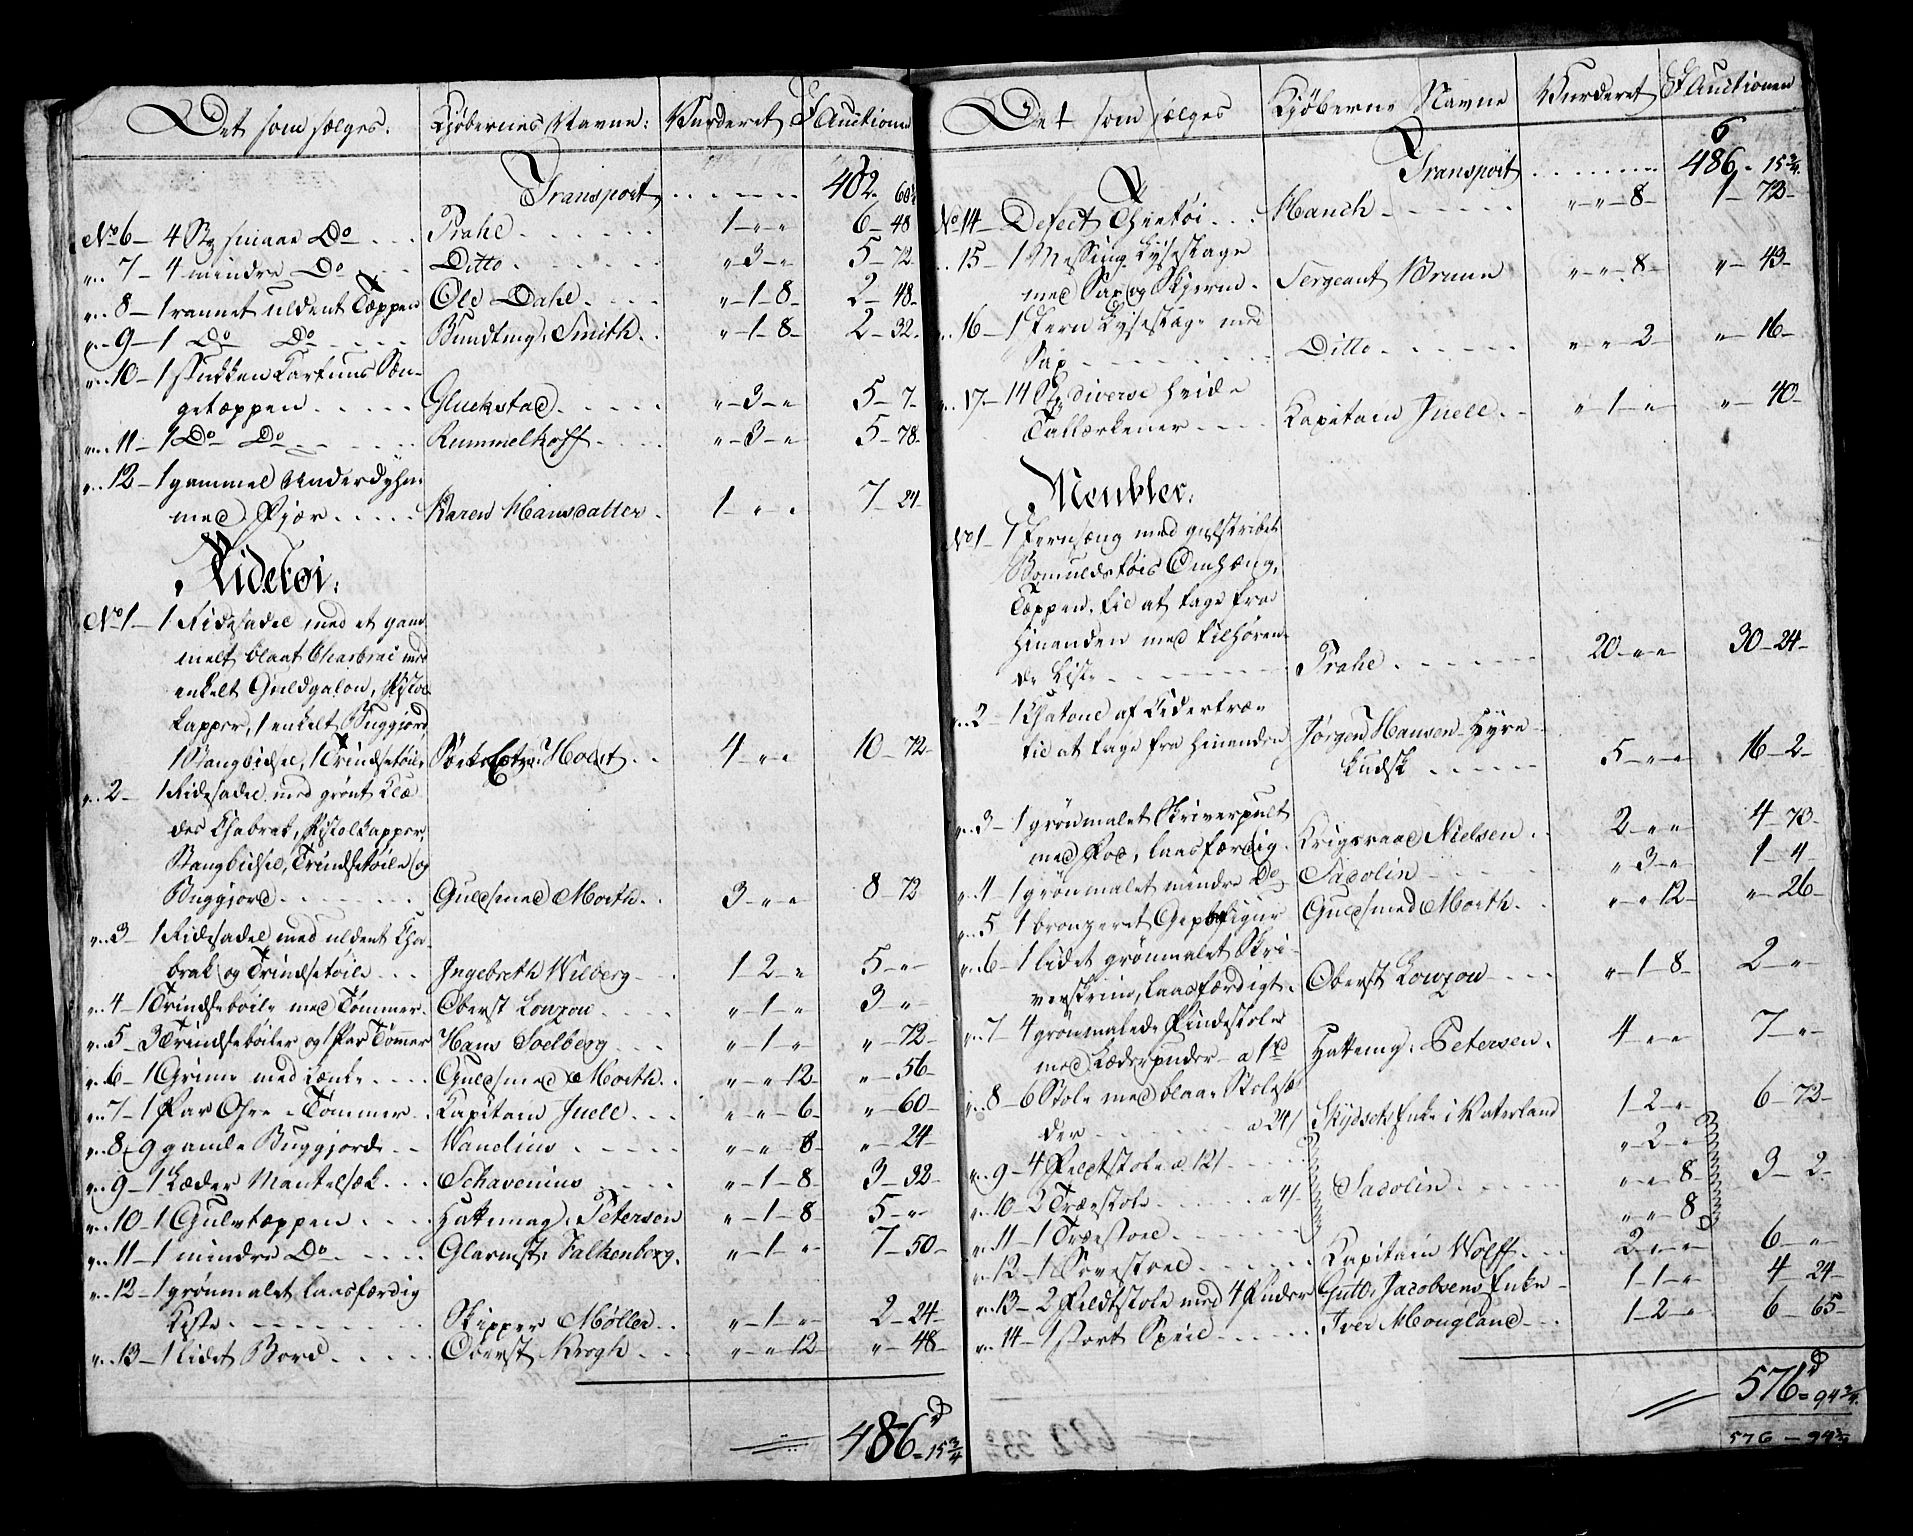 Det som sælges. Kjøbernes Navne: Vurderet Auctionen
Transport . . . . . . 402.
No 6 — 4 Stk smaae Do . . . Prahl . . . . . 1 — " — " 6 — 48
" 7 — 4 mindre Do . . . Ditto . . . . . " — 3 — " 5 — 72
" 8 — 1 uldent Tæppen Ole Dahl . . . . " — 1 — 8 — 2 — 48
" 9 — 1 Do Do . . . . Bundtmg: Smith . . " — 1 — 8 — 2 — 32
" 10 — 1 stukken Cartuns Sæn-
getæppen . . . . . Gluckstad . . . . . " — 3 — " 5 — 7
" 11 — 1 Do Do . . . . . Rummelhoff . . . . " — 3 — " 5 — 78
" 12 — 1 gammel Underdyhne
med Fjær . . . . . Karen Hansdatter . 1 — " — " 7 — 24
Ridetøi:
No 1 — 1 Ridesadel med et gam-
melt blaat med
enkelt Guldgalon, Pistol-
kapper, 1 enkelt Buggjord
1 Stangbidsel, 1 Trindsetøile Holst . . 4 — " — " 10 — 72
" 2 — 1 Ridesadel med grønt Klæ
des Chabrak, Pistolkapper,
Stangbidsel, Trindsetøile og
Buggjord . . . . . . Guldsmed Morth . . 3 — " — " 8 — 72
" 3 — 1 Ridesadel med uldent Cha-
brak og Trindsetøile . . . Ingebreth Wilberg . . 1 — 2 — " 5 — " —
" 4 — 1 Trindsetøile med Tømmer . Oberst Lowzow . . . . " — 1 — " 3 — "
" 5 — 3 Trindsetøiler og 1 Par Tømmer Hans Soelberg . . . " — 1 — " " — 72
" 6 — 1 Grime med Lænke . . . . Guldsmed Morth . . " — " — 12 " — 56
" 7 — 1 Par Øhre-Tømmer . . Kapitain Juell . . . " — " — 6 " — 60
" 8 — 9 gamle Buggjorde . . Wandius . . . . . " — " — 8 " — 24
" 9 — 1 Læder Mantelsæk . . . Schavenius . . . . " — 1 — 8 3 — 32
" 10 — 1 Gulvtæppen . . . . Hattemag: Petersen " — 1 — 8 5 — "
" 11 — 1 mindre Do . . . . Glarmst: Falkenberg . " — 1 — " 7 — 50
" 12 — 1 grønmalet laasfærdig
Kiste . . . . . . . Skipper Møller . . " — 1 — " 2 — 24
" 13 — 1 lidet Bord . . . . Oberst Krogh . . . " — " — 12 " — 48
486 d — 15 3/4
Det som sælges Kjøbernes Navne Vurderet Auctionen
6
Transport . . . . . . 486 — 15 3/4
No 14 — Defect Theetøi . . . Hanch . . . . . " — " — 8 1 — 72
" 15 — 1 Messing Lysestage
med Sax og Skjerm . Sergeant Bruun " — " — 8 " — 43
" 16 — 1 Jern Lysestage med
Sax . . . . . . . Ditto . . . . . . " — " — 2 " — 16
" 17 — 14 Stk diverse hvide
Tallærkener . . . . Kapitain Juell . . " — 1 — " " — 40
Meubler.
No 1 — 1 Jernsæng med gulstribet
Bomuldstøis Omhæng,
Tæppen, til at tage fra
hinanden med tilhøren-
de Kiste . . . . . . . Prahl . . . . . . 20 — " — " 30 — 24
" 2 — 1 Chatoul af Cidertræe
til at tage fra hinanden Jørgen Hansen Hyre-
kudsk . . . . . 5 — " — " 16 — 2
" 3 — 1 grønmalet Skriverpult
med Fod, laasfærdig . Krigsraad Nielsen . . 2 — " — " 4 — 73
" 4 — 1 grønmalet mindre Do Sadolin . . . . . " — 3 — " 1 — 4
" 5 1 bronzeret Gipsfigur Guldsmed Morth . . " — " — 12 " — 26
" 6 — 1 lidet grønmalet Skri-
verskrin, laasfærdigt . Oberst Lowzow . . . " — 1 — 8 2 — "
" 7 — 4 grønmalede Pindestoler
med Læderpuder a 1 rd Hattemg: Petersen . 4 — " — " 7 — "
" 8 — 6 Stole med blaae Stolesæ
der . . . . . . . a 24/ Skydsets Enke i Vaterland 1 — 2 — " 6 — 72
" 9 — 4 Feldtstole a 12/ . . . " — 2 — "
" 10 — 2 Træestole . . . . . a 4/ Sadolin . . . . . " — " — 8 3 — 2
" 11 — 1 Træestoel . . . . . " — " — 8
" 12 — 1 Sovestoel . . . . . . Kapitain Wolff . . . 2 — " — " 6 — "
" 13 — 2 Feldtstole med 4 Puder Guld: Jacobsens Enke 1 — 1 — " 4 — 24
" 14 — 1 stort Speil . . . . . Iver Mougland . . 1 — 2 — " 6 — 65
576 d — 94 3/4
576 — 94 3/4